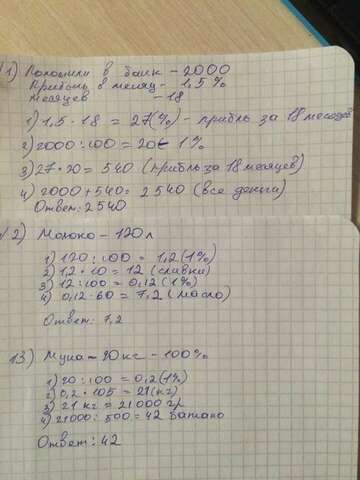 11) Положили в банк - 2000
Прибыль в месяц - 1,5 %
Месяцев - 18
1) 1,5 · 18 = 27(%) - прибль за 18 месяцев
2) 2000 : 100 = 20 - 1%
3) 27 · 20 = 540 (прибль за 18 месяцев)
4) 2000 + 540 = 2 540 (все деньги)
Ответ: 2 540
2) Молоко - 120 л
1) 120 : 100 = 1,2 (1%)
2) 1,2 · 10 = 12 (сливки)
3) 12 : 100 = 0,12 (1%)
4) 0,12 · 60 = 7,2 (масло)
Ответ: 7,2
13) Мука - 20 кг - 100%
1) 20 : 100 = 0,2 (1%)
2) 0,2 · 105 = 21 (кг)
3) 21 кг = 21 000 гр
4) 21000 : 500 = 42 батано
Ответ: 42